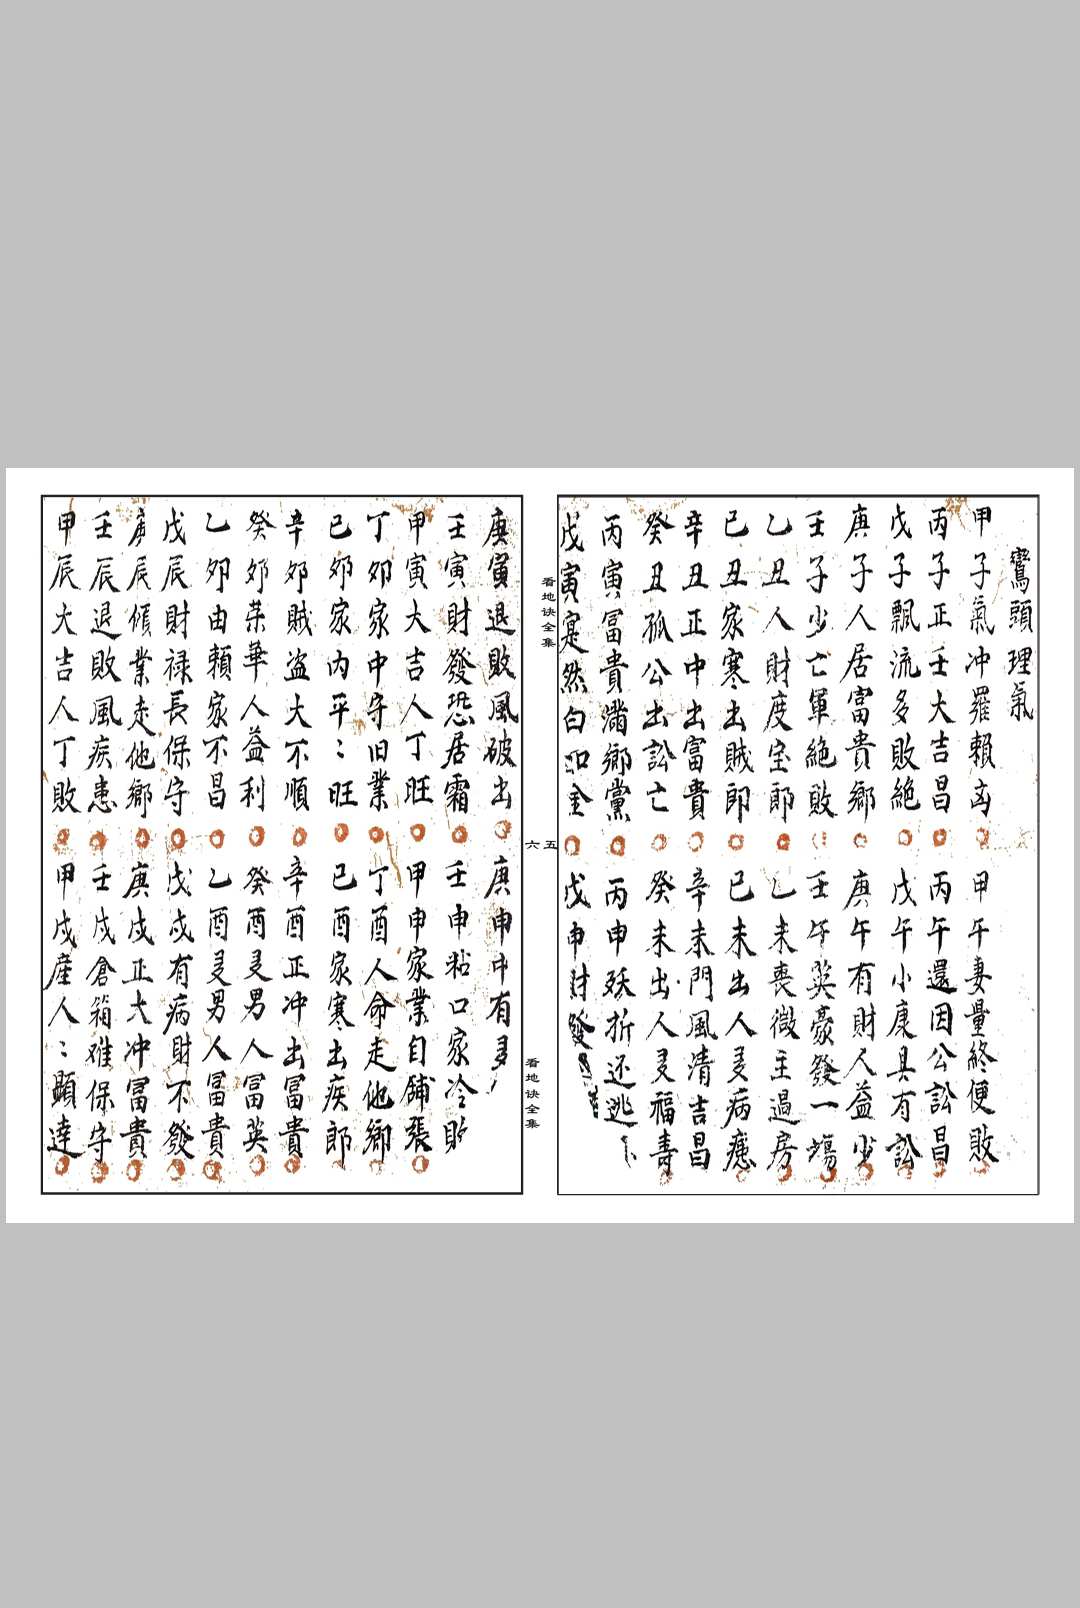 鸞頭理氣
甲子氣冲羅賴凶
甲午妻量終便敗
丙子正壬大吉昌
丙午還因公訟昌
戊子飄流多敗絕
戊午小康具有訟
庚子人居富貴鄉
庚午有財人益少
壬子少亡軍絕敗
壬午英豪發一塲
乙丑人財度宝郎
乙未喪微主過房
己丑家寒出賊郎
己未出人㚈病癋
辛丑正中出富貴
辛未門風清吉昌
癸丑孤公出訟亡
癸未出人㚈福壽
丙寅冨貴滿鄉黨
丙申妖折还逃
戊寅寔然白
戊申財發
看地诀全集
五
六
看地诀全集
庚寅退敗風破出
庚申中有
壬寅財發恐居霜
壬申粘口家冷
甲寅大吉人丁旺
甲申家業自鋪張
丁夘家中守旧業
丁酉人命走他鄉
己夘家内平〻旺
己酉家寒出疾郎
辛夘賊盗大不順
辛酉正冲出冨貴
癸夘荣華人益利
癸酉㚈男人冨英
乙夘由賴家不昌
乙酉㚈男人冨貴
戊辰財禄長保守
戊戌有病財不發
庚辰傾業走他鄉
庚戌正大冲冨貴
壬辰退敗風疾患
壬戌倉箱难保守
甲辰大吉人丁敗
甲戌産人〻顯達